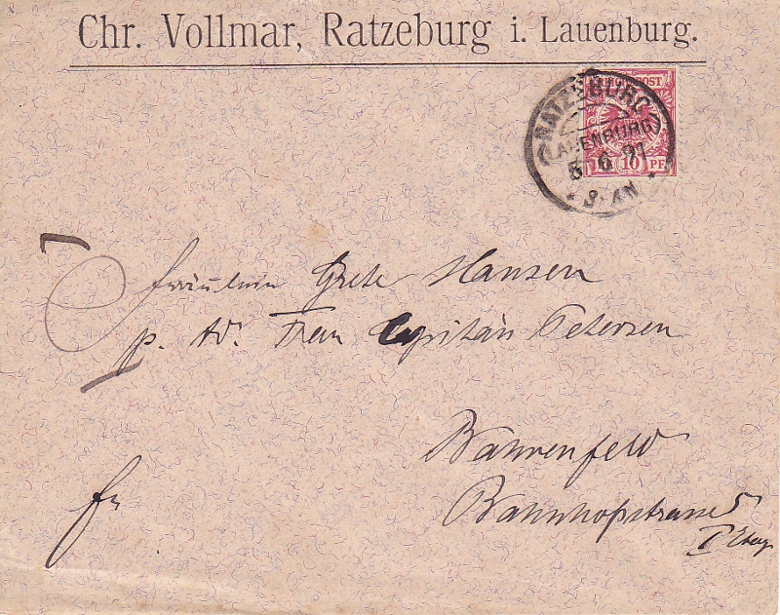 Chr. Vollmar, Ratzeburg i. Lauenburg.
REICHSPOST
10 PF
RATZEBURG
(LAUENBURG)
6 91
* 8-9N *
Fräulein Grete Hansen
p. Ad. Frau Capitän Petersen
Bahrenfeld
Bahnhofstrasse 5
I Etage
fr